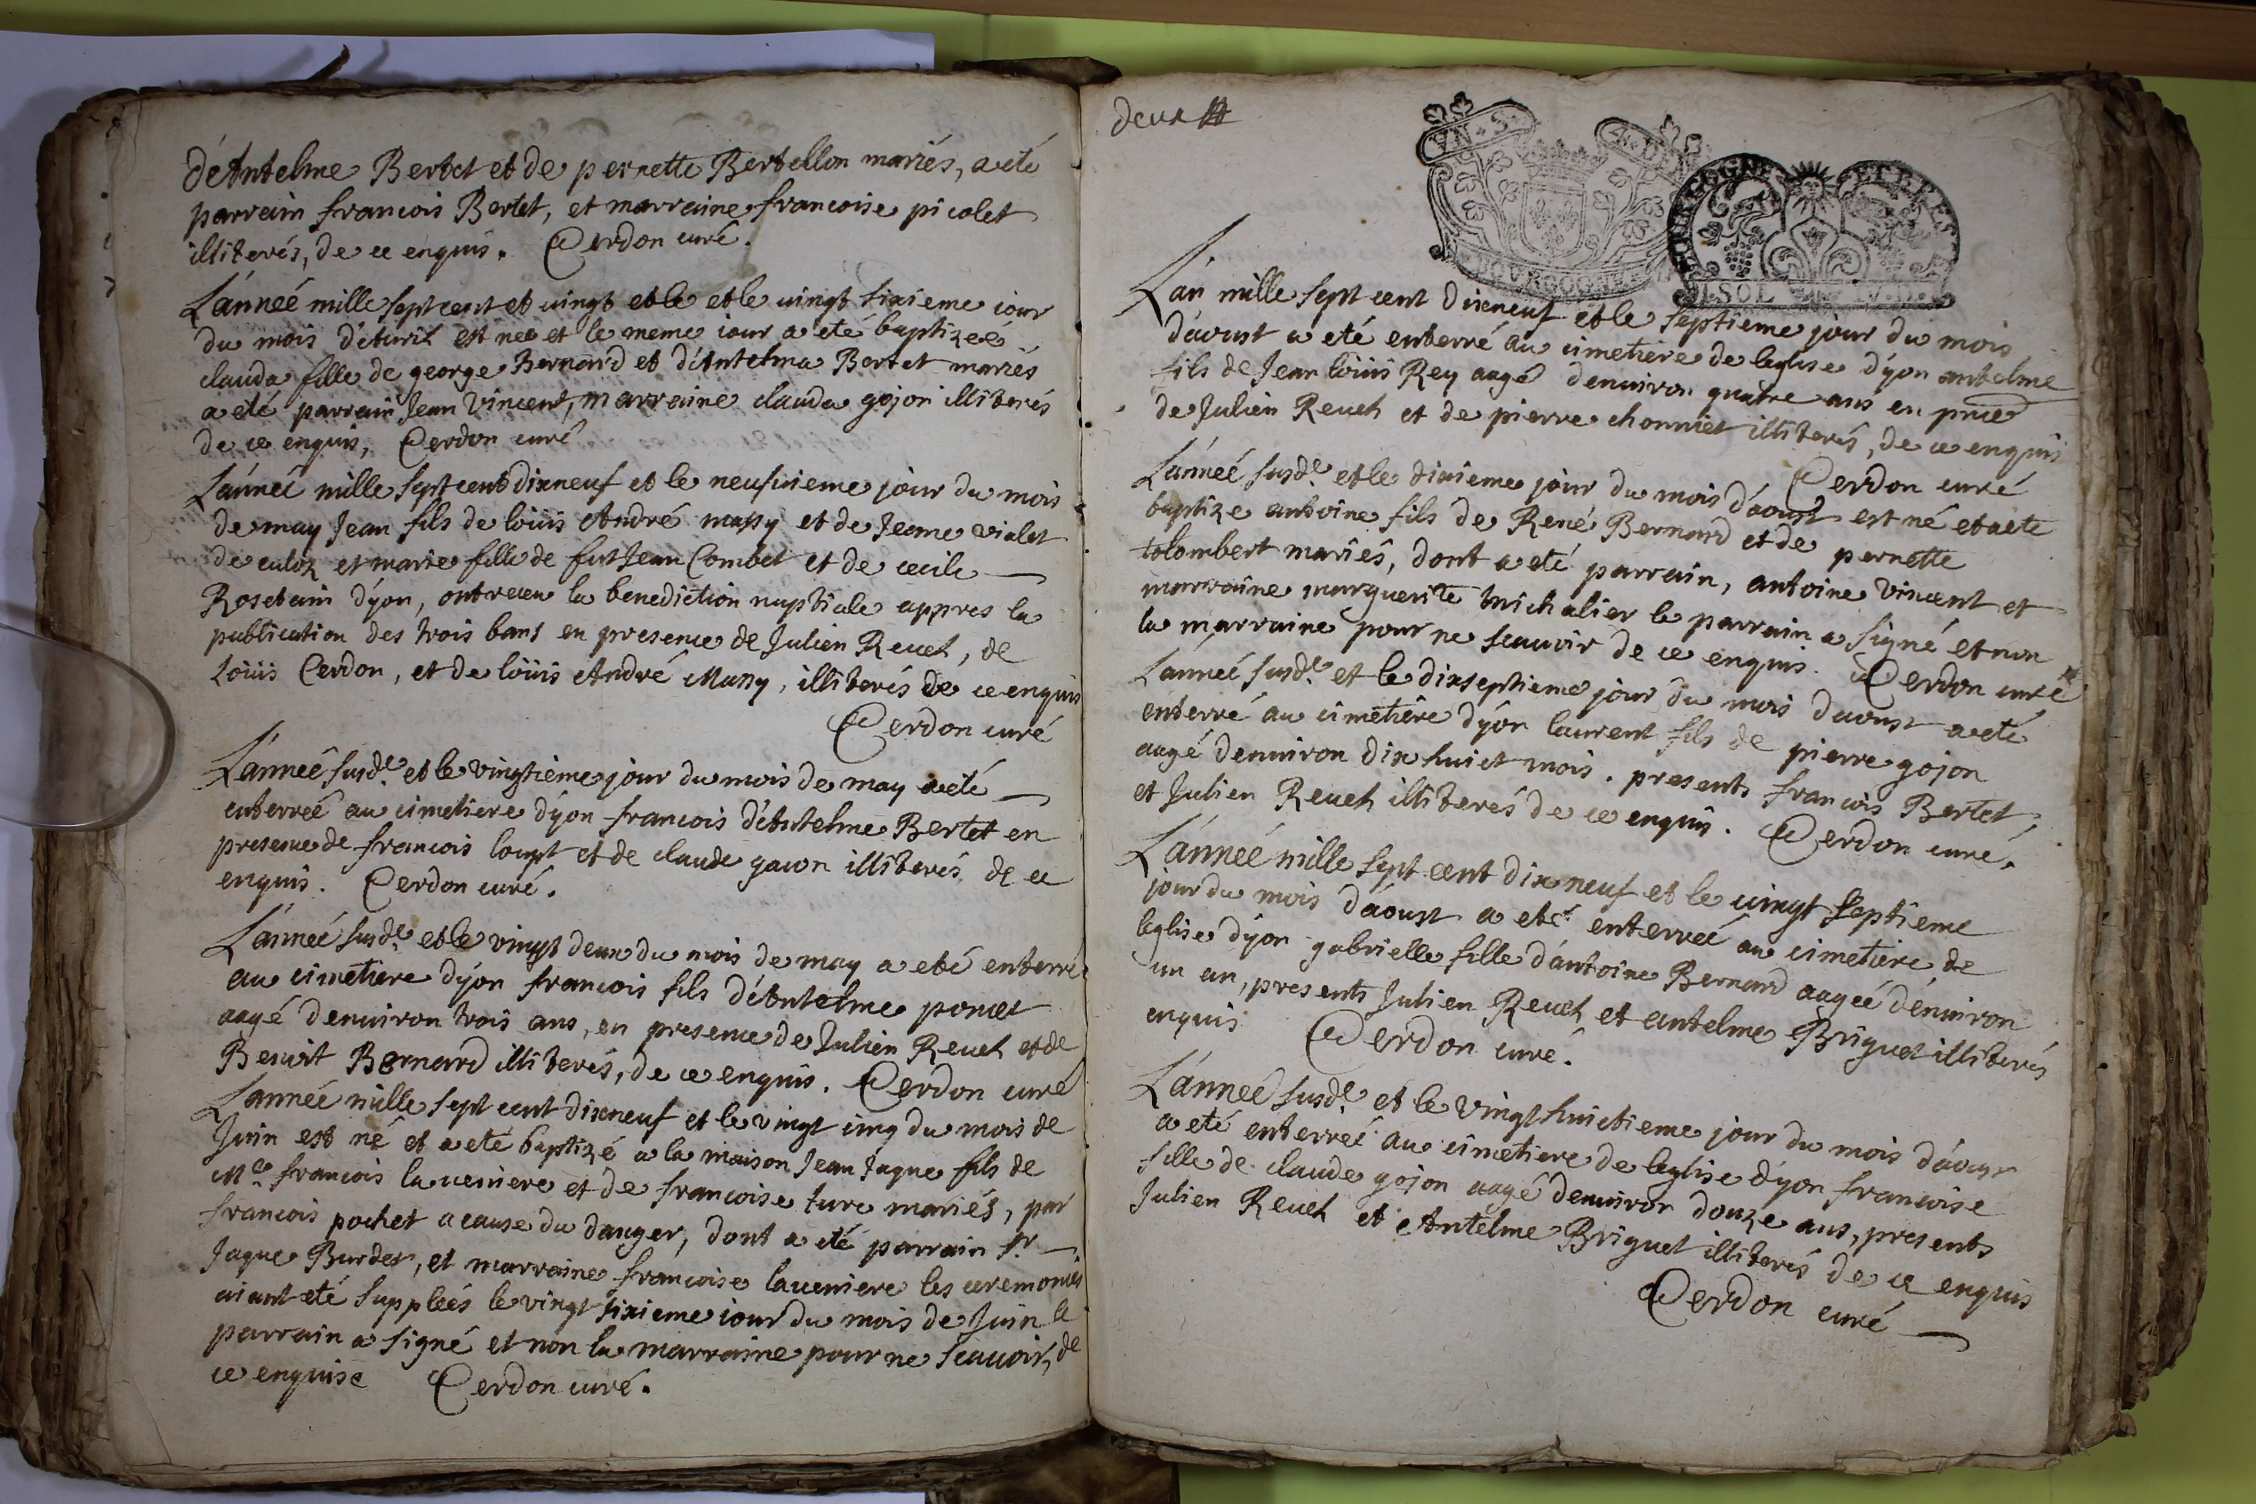 d'Antelme Bertet et de pernette Bertellon mariés, a eté
parrain francois Bertet, et marraine francoise picolet
illiterés, de ce enquis. Cerdon curé.
L'anneé mille sept cent et vingt et le et le vingt sixieme iour
du mois d'avril est neé et le meme iour a eté baptizeé
clauda fille de george Bernard et d'Antelma Bertet mariés
a eté parrain Jean Vincent, marraine clauda gojon illiterés
de ce enquis, Cerdon curé
L'anneé mille sept cent dixneuf et le neufuieme jour du mois
de may Jean fils de loüis André massy et de Jeanne violet
de culoz et marie fille de fut Jean Combet et de cecile
Rosetain d'yon, ont receu la benediction nuptiale appres la
publication des trois bans en presence de Julien Reueh, de
Loüis Cerdon, et de loüis André Massy, illiterés de ce enquis
Cerdon curé
L'anneé susde. et le vingtieme jour du mois de may a eté
enterreé au cimetiere d'yon francois d'Antelme Bertet en
presence de francois loupt et de claude gacon illiterés de ce
enquis. Cerdon curé.
L'anneé susde. et le vingt deux du mois de may a eté enterré
au cimetiere d'yon francois fils d'Antelme poncet
aagé d'enuiron trois ans, en presence de Julien Reueh et de
Benoit Bernard illiterés, de ce enquis. Cerdon curé
L'anneé mille sept cent dixneuf et le vingt cinq du mois de
Juin est né et a eté baptizé a la maison Jean Jaque fils de
Me. francois laueniere et de francoise turc mariés, par
francois pochet a cause du danger, dont a eté parrain sr.
Jaque Burdet, et marraine francoise laueniere les ceremonies
aiant eté suppleés le vingt sixieme iour du mois de Juin le
parrain a signé et non la marraine pour ne scauoir, de
ce enquise Cerdon curé.
deux
VN. S. 4. D.
BOURGOGNE
BOURGOGNE ET BRES
I. SOL
L'an mille sept cent dixneuf et le septieme jour du mois
d'aoust a eté enterré au cimetiere de leglise d'yon antelme
fils de Jean loüis Rey aagé d'enuiron quatre ans en prnce
de Julien Reueh et de pierre chonniet illiterés, de ce enquis
Cerdon curé
L'anneé susde. et le dixieme jour du mois d'aoust est né et a ete
baptize antoine fils de René Bernard et de pernette
tolombert mariés, dont a eté parrain, antoine Vincent et
marraine marguerite michalier le parrain a signé et non
la marraine pour ne scauoir de ce enquis. Cerdon curé
L'anneé susde. et le dixseptieme jour du mois d'aoust a eté
enterré au cimetiere d'yon laurent fils de pierre gojon
aagé d'enuiron dix huict mois. presents francois Bertet,
et Julien Reueh illiterés de ce enquis. Cerdon curé.
L'anneé mille sept cent dix neuf et le vingt septieme
jour du mois d'aoust a eté enterreé au cimetiere de
leglise d'yon gabrielle fille d'antoine Bernard aageé d'enuiron
un an, presents Julien Reueh et antelme Briguet illiterés
enquis. Cerdon curé.
L'anneé susde. et le vingt huictieme jour du mois d'aoust
a eté enterreé au cimetiere de leglise d'yon francoise
fille de claude gojon aagé d'enuiron douze ans, presents
Julien Reueh et Antelme Briguet illiterés de ce enquis
Cerdon curé